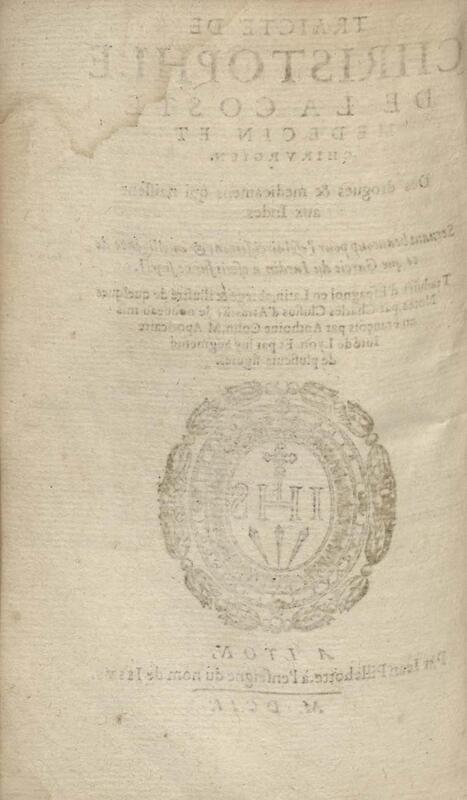 TRAICTE DE
CHRISTOPHLE
DE LA COSTE
MEDECIN ET
CHIRVRGIEN.
Des drogues & medicamens qui naissent
aux Indes.
Seruant beaucoup pour l'esclaircissement & intelligence de
ce que Garcie du Iardin a escrit sur ce subject.
Traduit d'Espagnol en Latin, abregé & illustré de quelques
Notes, par Charles Clusius d'Arras: & de nouueau mis
en François par Anthoine Colin, M. Apoticaire
Iuré de Lyon. Et par luy augmenté
de plusieurs figures.
IHS
A LYON,
Par Iean Pillehotte, à l'enseigne du nom de Iesvs.
M. DCII.